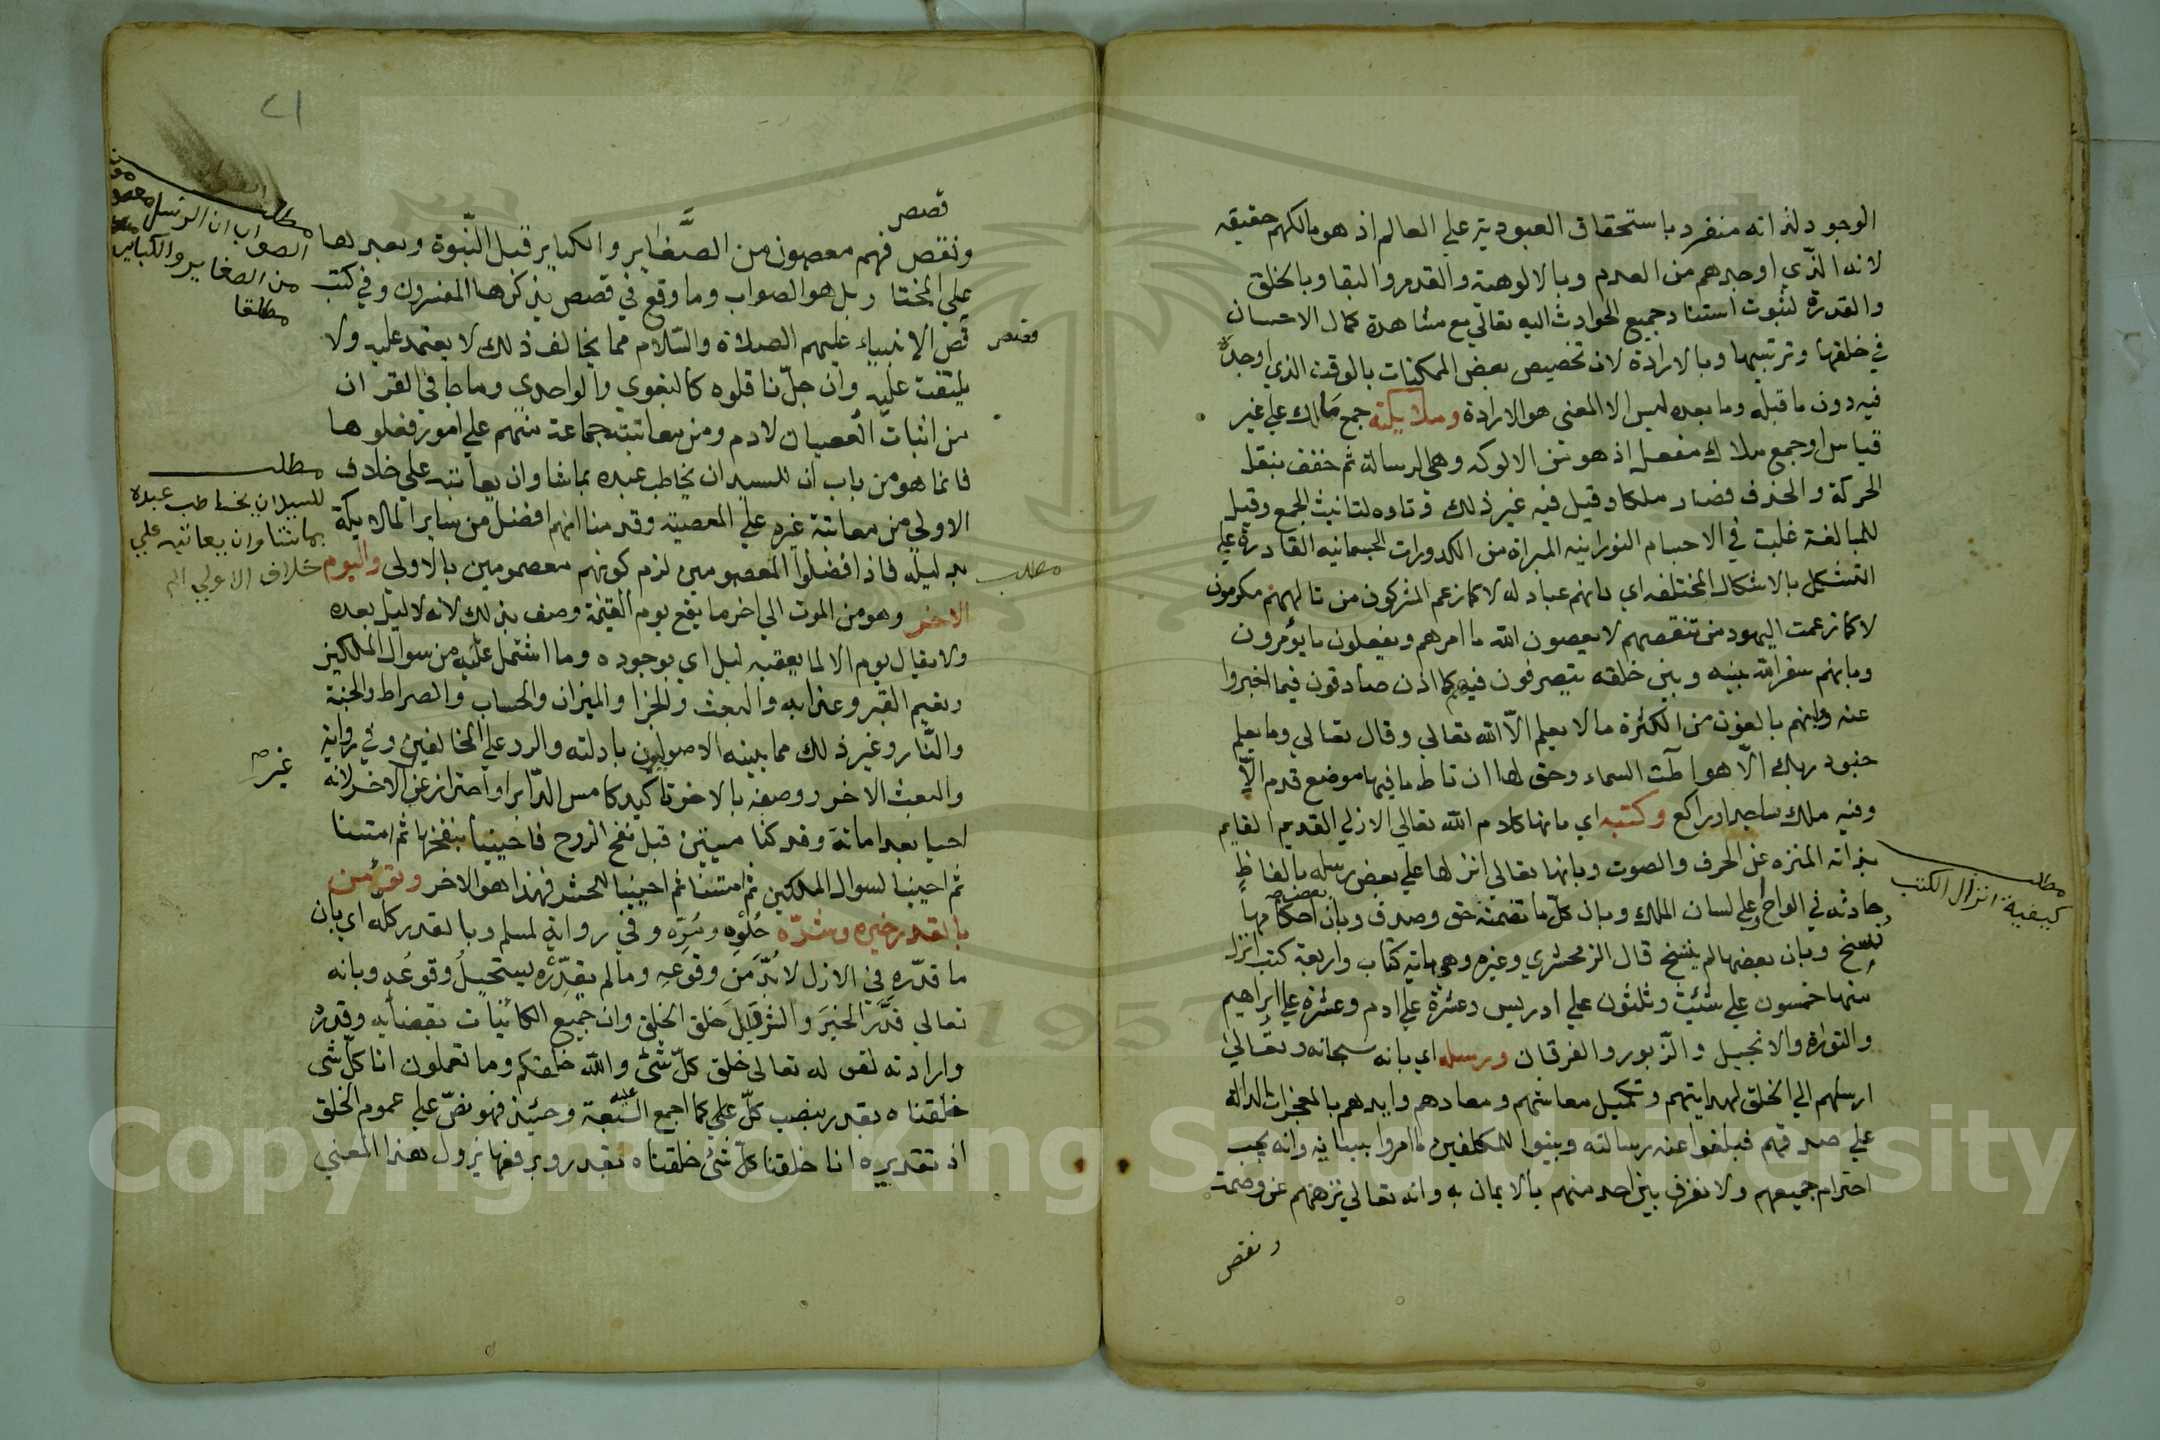 الوجود لذاته منفرد باستحقاق العبودية علي العالم اذ هو مالكهم حقيقه
لانه الذي اوجدهم من العدم وبالالوهية والقدم والبقا وبالخلق
والقدرة لثبوت استناد جميع الحوادث اليه تعالي مع مشاهدة كمال الاحسان
في خلقها وترتيبها وبالارادة لان تخصيص بعض الممكنات بالوقت الذي اوجده
فيه دون ما قبله وما بعده ليس الا لمعني هو الارادة وملايكته جمع ملاك علي غير
قياس او جمع ملاك مفعل اذ هو من الالوكه وهي الرسالة ثم خفف بنقل
الحركة والحذف فصار ملكا وقيل فيه غير ذلك وتاوه لتانيث الجمع وقيل
للمبالغة غلبت في الاجسام النورانيه المبراة من الكدورات الجسمانيه القادرة علي
التشكل بالاشكال المختلفه اي بانهم عباد له لا كما زعم المشركون من تالههم مكرمون
لا كما زعمت اليهود من تنقصهم لا يعصون الله ما امرهم ويفعلون ما يؤمرون
وبانهم سفرا لله بينه وبين خلقه يتصرفون فيهم كما اذن صادقون فيما اخبروا
عنه وانهم بالغون من الكثرة ما لا يعلم الا الله تعالي وقال تعالي وما يعلم
جنود ربك الا هو اطت السماء وحق لها ان تاط ما فيها موضع قدم الا
وفيه ملك ساجد او راكع وكتبه اي بانها كلام الله تعالي الازلي القديم القايم
بذاته المنزه عن الحرف والصوت وبانها تعالي انزلها علي بعض رسله بالفاظ
حادثه في الواح او علي لسان الملك وبان كل ما تضمنته حق وصدق وبان بعض احكامها
نسخ وبان بعضها لم ينسخ قال الزمخشري وغيره وهي ماية كتاب واربعة كتب انزل
منها خمسون علي شيث وثلثون علي ادريس وعشرة علي ادم وعشرة علي ابراهيم
والتوراة والانجيل والزبور والفرقان ورسله اي بانه سبحانه وتعالي
ارسلهم الي الخلق لهدايتهم وتكميل معاشهم ومعادهم وايدهم بالمعجزات الدالة
علي صدقهم فبلغوا عنه رسالته وبينوا للمكلفين ما امروا ببيانه وانه يجب
احترام جميعهم ولا نفرق بين احد منهم بالايمان به وانه تعالي نزههم عن وصمة
ونقص
مطلب
كيفية انزال الكتب
٢١
قصص
ونقص فهم معصومون من الصغاير والكباير قبل النبوة وبعدها
علي المختار بل هو الصواب وما وقع في قصص يذكرها المفسرون وفي كتب
قص الانبياء عليهم الصلاة والسلام مما يخالف ذلك لا يعتمد عليه ولا
يلتفت عليه وان جل ناقلوه كالبغوي والواحدي وما جا في القران
من اثبات العصيان لادم ومن معاتبة جماعة منهم علي امور فعلوها
فانما هو من باب ان للسيد ان يخاطب عبده بما شا وان يعاتبه علي خلاف
الاولي من معاتبة غيره علي المعصية وقدمنا انهم افضل من ساير الملايكة
بدليله فاذا فضلوا المعصومين لزم كونهم معصومين بالاولي واليوم
الاخر وهو من الموت الي اخر ما يقع يوم القيمة وصف بذلك لانه لا ليل بعده
ولا يقال يوم الا لما يعقبه ليل اي بوجوده وما اشتمل عليه من سوال الملكين
ونعيم القبر وعذابه والبعث والجزا والميزان والحساب والصراط والجنة
والنار وغير ذلك مما بينه الاصوليون بادلته والرد علي المخالفين وفي رواية
والبعث الاخر ووصفه بالاخر تاكيد كامس الدابر او احتراز عن الاخر لانه
احيا بعد اماتة وقد كنا ميتين قبل نفخ الروح فاحيينا بنفخها ثم امتنا
ثم احيينا لسوال الملكين ثم امتنا ثم احيينا للحشر فهذا هو الاخر وتؤمن
بالقدر خيره وشره حلوه ومره وفي رواية لمسلم وبالقدر كله اي بان
ما قدره في الازل لا بد من وقوعه وما لم يقدره يستحيل وقوعه وبانه
تعالي قدر الخير والشر قبل خلق الخلق وان جميع الكائنات بقضايه وقدره
وارادته لقوله تعالي خلق كل شئ والله خلقكم وما تعملون انا كل شئ
خلقناه بقدر بنصب كل علي كما اجمع عليه السبعة وحينئذ فهو نص علي عموم الخلق
اذ تقديره انا خلقنا كل شئ خلقناه بقدر وبرفعها يزول هذا المعني
مطلب
الصواب ان الرسل معصومون
من الصغاير والكباير
مطلقا
قصص
مطلب
للسيد ان يخاطب عبده
بما شا وان يعاتبه علي
خلاف الاولي الم
مطلب
غير
Copyright © King Saud University
1957